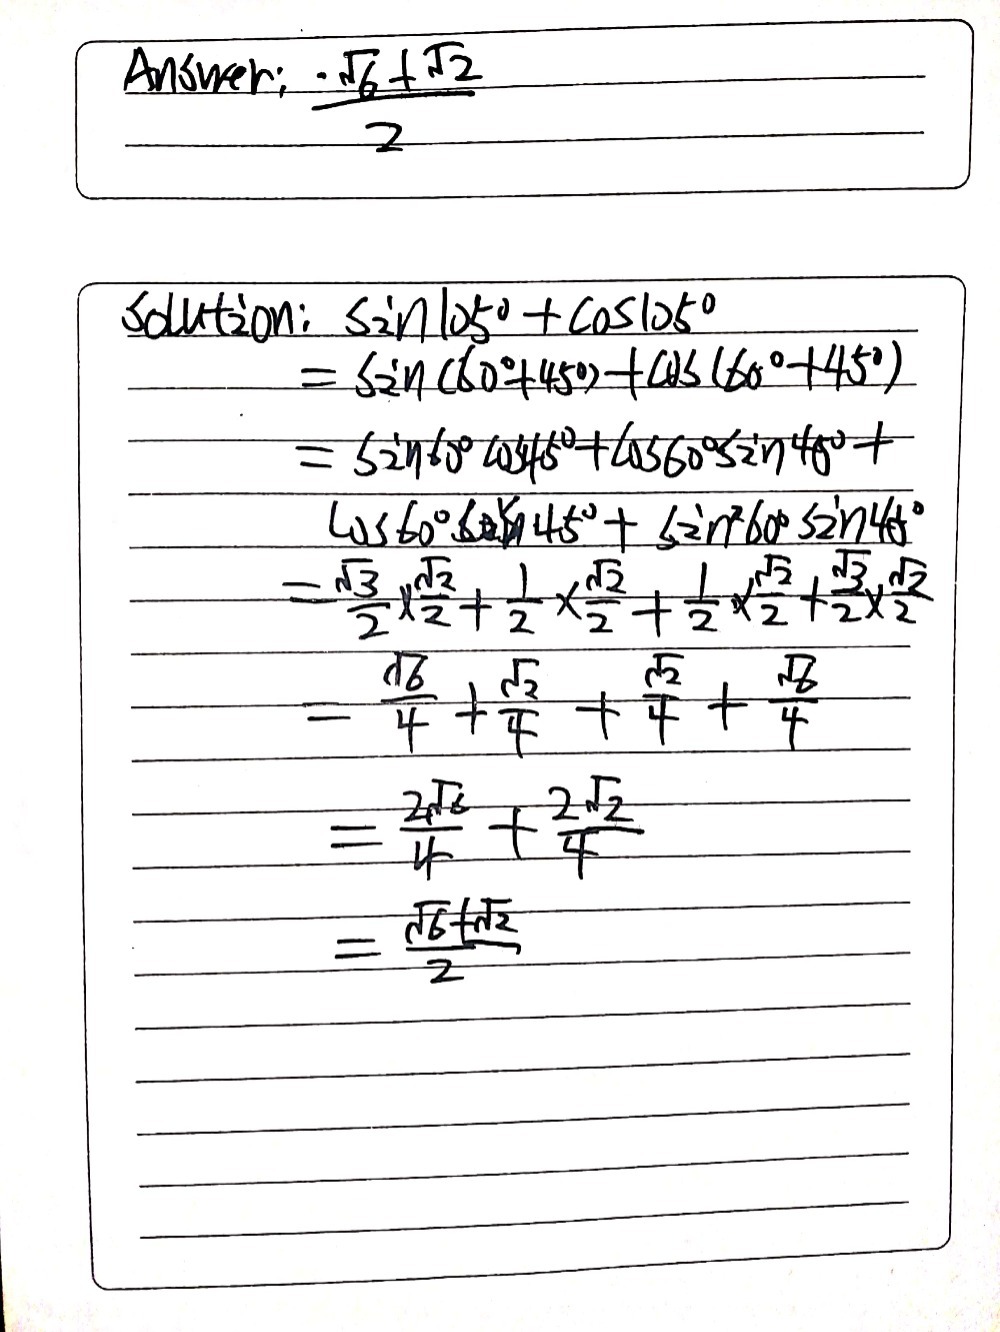 Answer: √6+√2
2
Solution: sin105°+cos105°
= sin(60°+45°)+cos(60°+45°)
= sin60°cos45°+cos60°sin45°+
cos60° 45°+ sin60° sin45°
= √3/2 × √2/2 + 1/2 × √2/2 + 1/2 × √2/2 + √3/2 × √2/2
= √6/4 + √2/4 + √2/4 + √6/4
= 2√6/4 + 2√2/4
= √6+√2
2